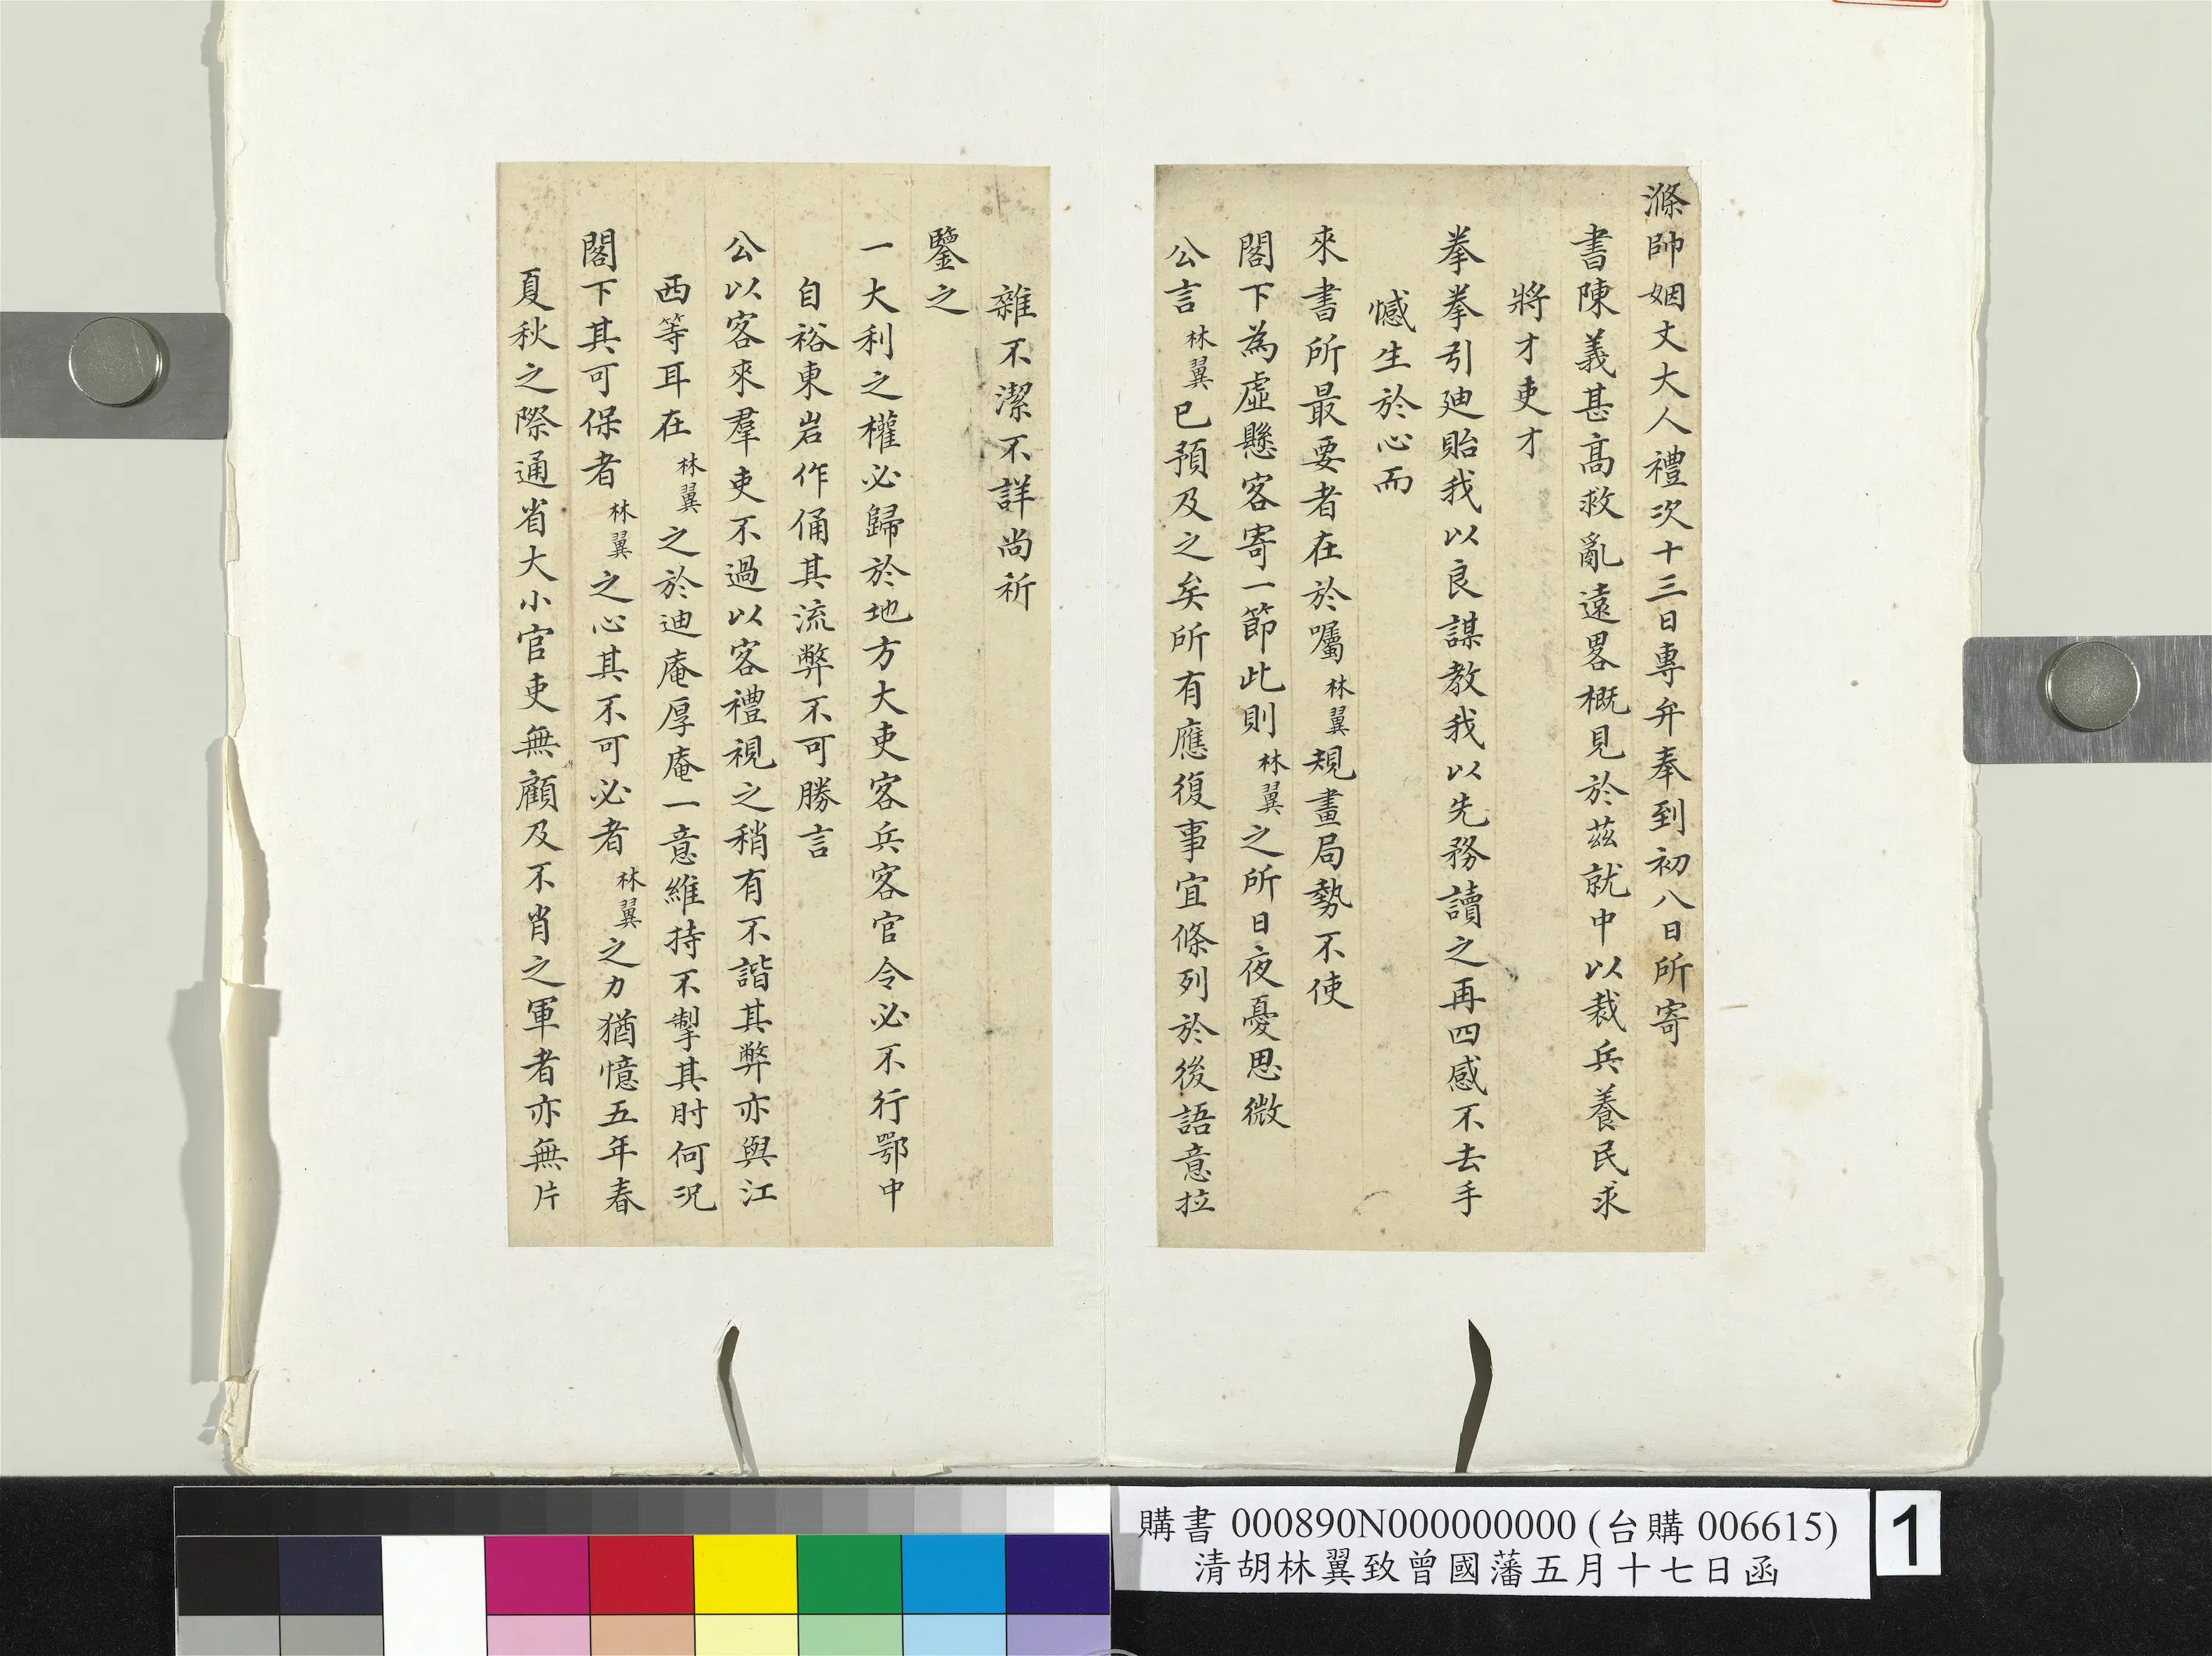 滌帥姻丈大人禮次十三日專弁奉到初八日所寄
書陳義甚高救亂遠畧概見於茲就中以裁兵養民求
將才吏才
拳拳引廸貽我以良謀教我以先務讀之再四感不去手
憾生於心而
來書所最要者在於囑林翼規畫局勢不使
閣下為虛懸客寄一節此則林翼之所日夜憂思微
公言林翼已預及之矣所有應復事宜條列於後語意拉
雜不潔不詳尚祈
鑒之
一大利之權必歸於地方大吏客兵客官令必不行鄂中
自裕東岩作俑其流弊不可勝言
公以客來羣吏不過以客禮視之稍有不諧其弊亦與江
西等耳在林翼之於迪庵厚庵一意維持不掣其肘何況
閣下其可保者林翼之心其不可必者林翼之力猶憶五年春
夏秋之際通省大小官吏無顧及不肖之軍者亦無片
購書 000890N000000000 (台購 006615)
清胡林翼致曾國藩五月十七日函
1